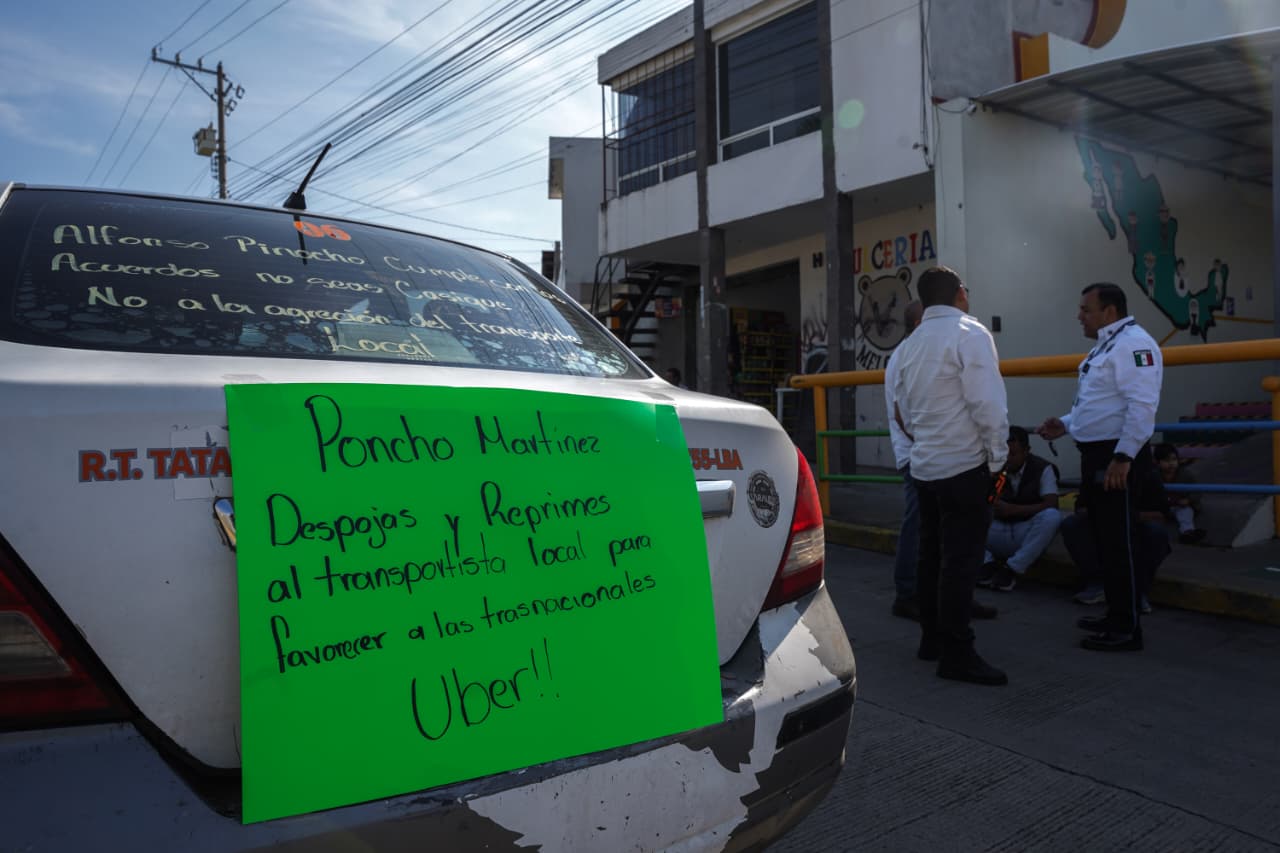 06
Alfonso Pinocho Cumple con los
Acuerdos no seas Casique
No a la agresión del transporte
Local
R.T. TATA
55-LBA
Poncho Martinez
Despojas y Reprimes
al transportista local para
favorecer a las trasnacionales
Uber!!
U CERIA